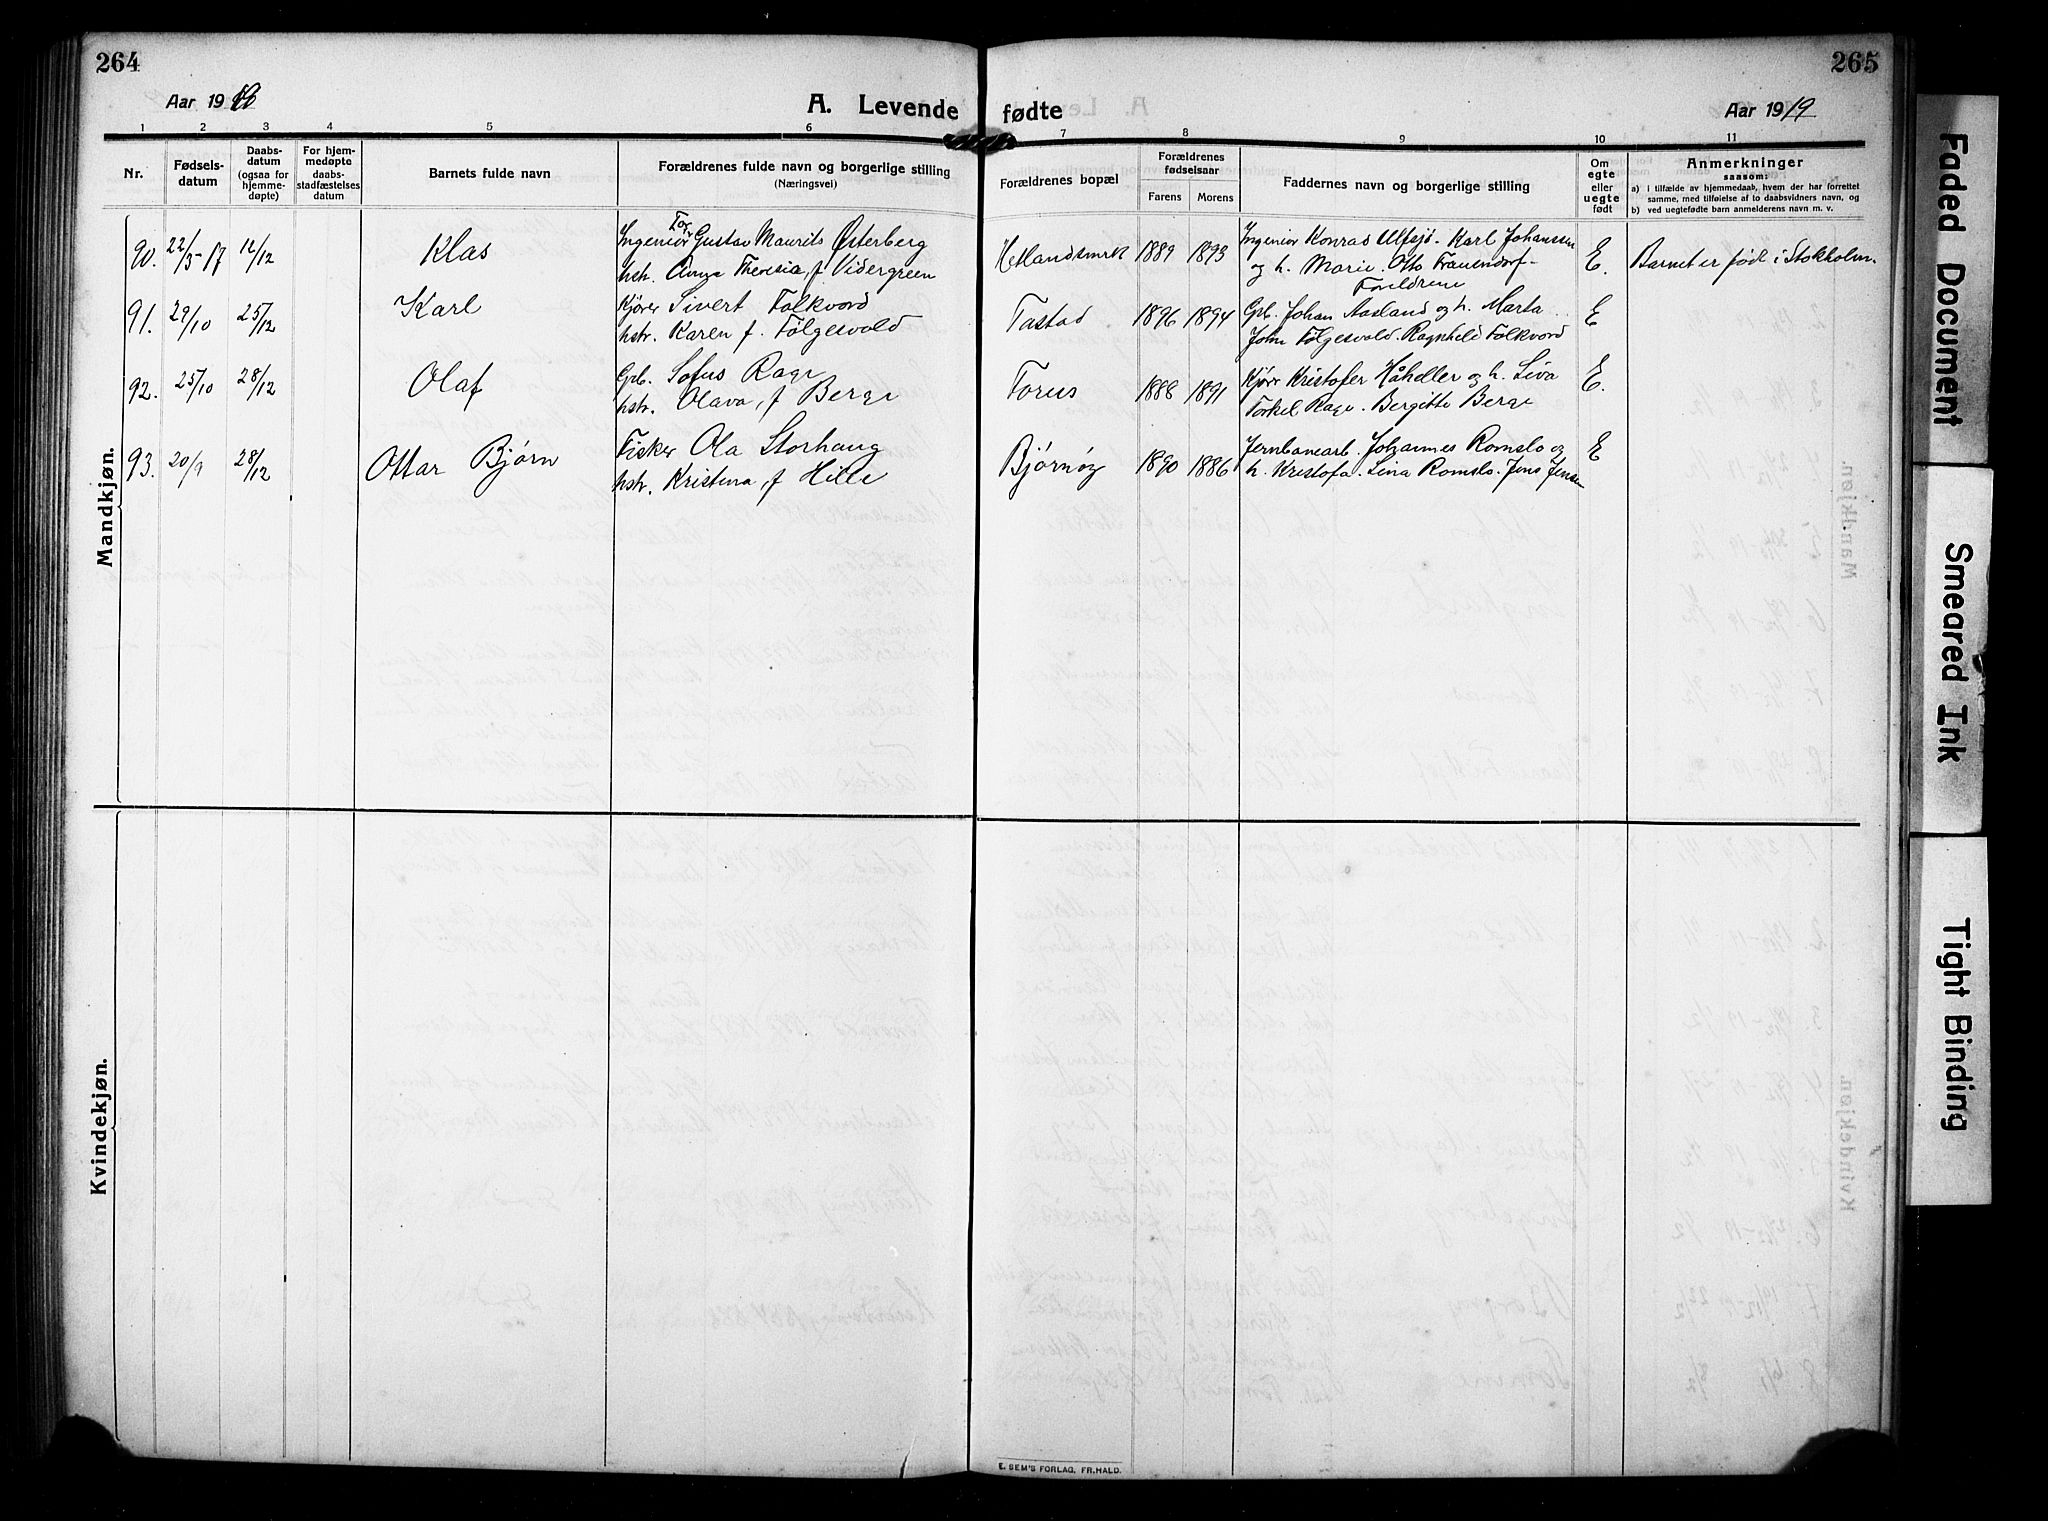 264
265
Aar 1919
A. Levende fødte
Aar 1919
1 2 3 4 5 6 7 8 9 10 11
Nr.
Fødsels-
datum
Daabs-
datum
(ogsaa for
hjemme-
døpte)
For hjem-
medøpte
daabs-
stadfæstelses
datum
Barnets fulde navn
Forældrenes fulde navn og borgerlige stilling
(Næringsvei)
Forældrenes bopæl
Forældrenes
fødselsaar
Farens Morens
Faddernes navn og borgerlige stilling
Om
egte
eller
uegte
født
Anmerkninger
saasom:
a) i tilfælde av hjemmedaab, hvem der har forrettet
samme, med tilføielse af to daabsvidners navn, og
b) ved uegtefødte barn anmelderens navn m. v.
Mandkjøn.
90. 22/5-17 14/12 Klas
Tor
Ingeniør Gustav Maurits Østerberg
hstr. Anna Theresia, f. Vidergreen
Hetlandsmrk 1889 1893
Ingeniør Konrad Ulfsjö. Karl Johanssen
og h. Marie. Otto Frauendorf-
Foreldrene
E. Barnet er født i Stokholm.
91. 29/10 25/12 Karl
Kjører Sivert Folkvord
hstr. Karen f. Følgesvold
Tastad 1896 1894
Gpb. Johan Aasland og h. Marta
John Følgesvold. Ragnhild Folkvord
E
92. 25/10 28/12 Olaf
Gpb. Sofus Rage
hstr. Olava, f Berge
Forus 1888 1891
Kjører Kristofer Håheller og h. Siva
Torkel Rage. Bergitte Berge
E.
93. 20/9 28/12 Ottar Bjørn
Fisker Ola Storhaug
hstr. Kristina, f Hille
Bjørnøy 1890 1886
Jernbanearb. Johannes Romslo og
h. Kristofa. Lina Romslo. Jens Jensen
E
Kvindekjøn.
E. SEM'S FORLAG, FR.HALD.
Faded Document
Smeared Ink
Tight Binding